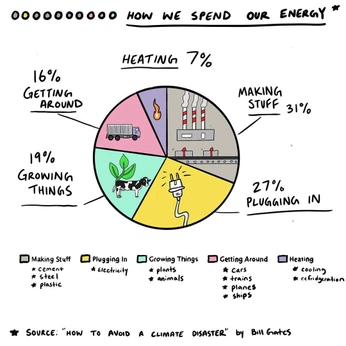 HOW WE SPEND OUR ENERGY *
HEATING 7%
16%
GETTING
AROUND
MAKING
STUFF 31%
19%
GROWING
THINGS
27%
PLUGGING IN
Making Stuff
* cement
* steel
* plastic
Plugging In
* electricity
Growing Things
* plants
* animals
Getting Around
* cars
* trains
* planes
* ships
Heating
* cooling
* refridgeration
* SOURCE: "HOW TO AVOID A CLIMATE DISASTER" by Bill Gates